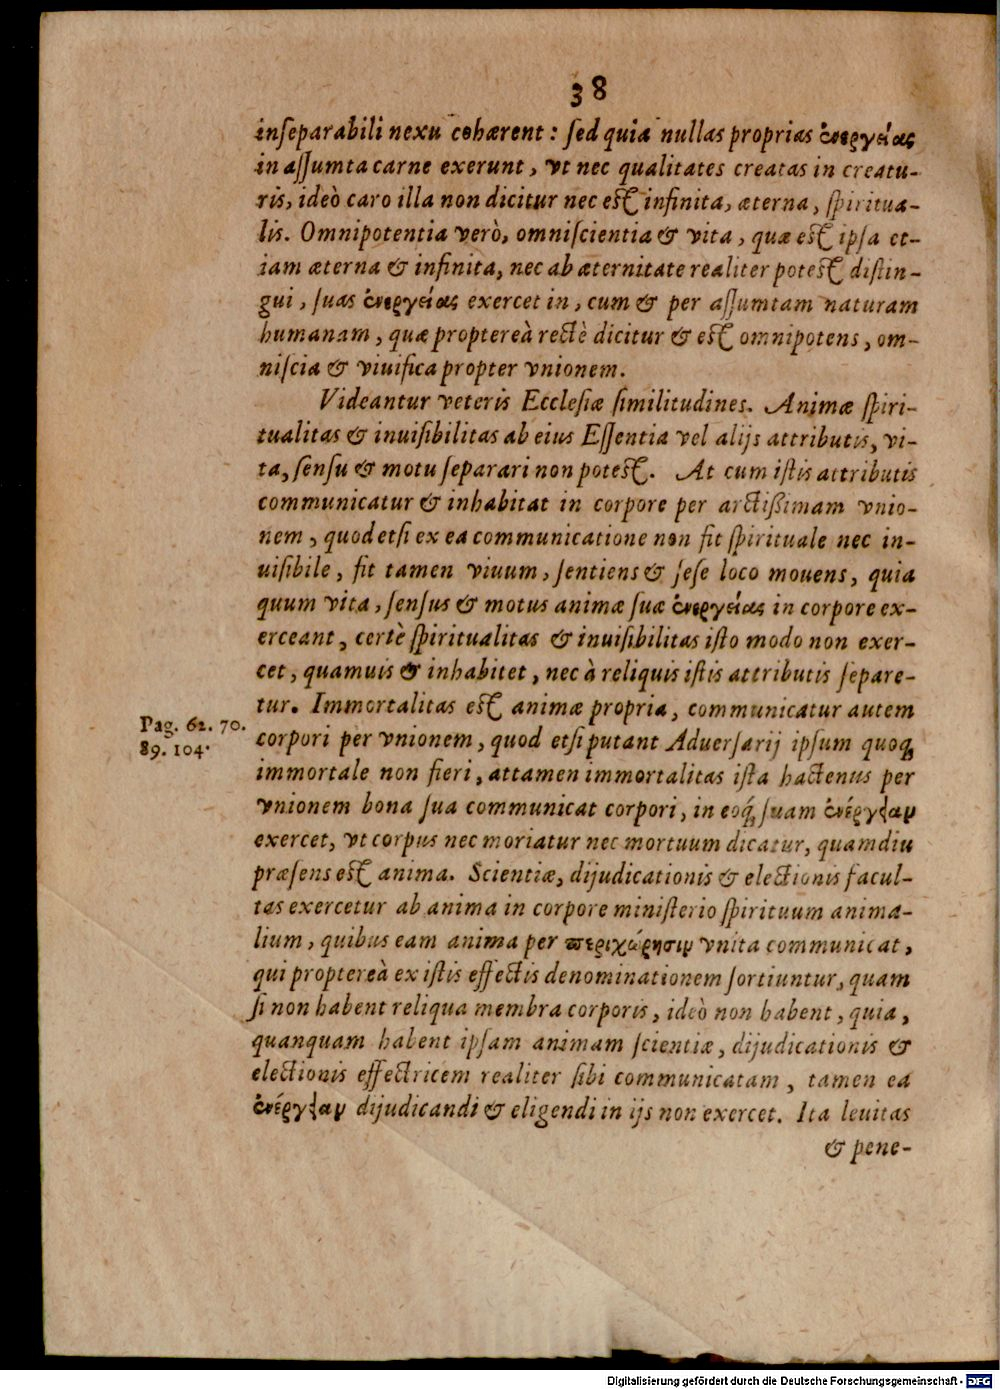 38
inſeparabili nexu cohærent : ſed quia nullas proprias ἐνεργείας
in aſſumta carne exerunt, vt nec qualitates creatas in creatu-
ris, ideò caro illa non dicitur nec est infinita, æterna, ſpiritua-
lis. Omnipotentia verò, omniſcientia & vita, quæ est ipſa et-
iam æterna & infinita, nec ab æternitate realiter potest diſtin-
gui, ſuas ἐνεργείας exercet in, cum & per aſſumtam naturam
humanam, quæ proptereà rectè dicitur & est omnipotens, om-
niſcia & viuifica propter vnionem.
Videantur veteris Eccleſiæ ſimilitudines. Animæ ſpiri-
tualitas & inuiſibilitas ab eius Eſſentia vel alijs attributis, vi-
ta, ſenſu & motu ſeparari non potest. At cum iſtis attributis
communicatur & inhabitat in corpore per arctißimam vnio-
nem, quod etſi ex ea communicatione non fit ſpirituale nec in-
uiſibile, fit tamen viuum, ſentiens & ſeſe loco mouens, quia
quum vita, ſenſus & motus animæ ſuæ ἐνεργείας in corpore ex-
erceant, certè ſpiritualitas & inuiſibilitas iſto modo non exer-
cet, quamuis & inhabitet, nec à reliquis iſtis attributis ſepare-
tur. Immortalitas est animæ propria, communicatur autem
Pag. 62. 70.
89. 104.
corpori per vnionem, quod etſi putant Aduerſarij ipſum quoq́;
immortale non fieri, attamen immortalitas iſta hactenus per
vnionem bona ſua communicat corpori, in eoq́; ſuam ἐνέργειαν
exercet, vt corpus nec moriatur nec mortuum dicatur, quamdiu
præſens est anima. Scientiæ, dijudicationis & electionis facul-
tas exercetur ab anima in corpore miniſterio ſpirituum anima-
lium, quibus eam anima per περιχώρησιν vnita communicat,
qui proptereà ex iſtis effectis denominationem ſortiuntur, quam
ſi non habent reliqua membra corporis, ideò non habent, quia,
quanquam habent ipſam animam ſcientiæ, dijudicationis &
electionis effectricem realiter ſibi communicatam, tamen ea
ἐνέργειαν dijudicandi & eligendi in ijs non exercet. Ita leuitas
& pene-
Digitalisierung gefördert durch die Deutsche Forschungsgemeinschaft - DFG